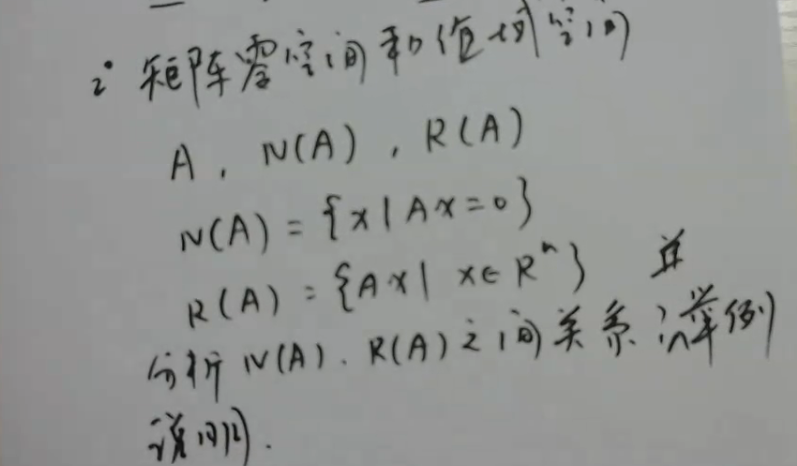 2° 矩阵零空间和值域空间
A, N(A), R(A)
N(A) = {x | Ax = 0}
R(A) = {Ax | x ∈ Rⁿ} 并
分析 N(A). R(A) 之间关系 举例
说明.